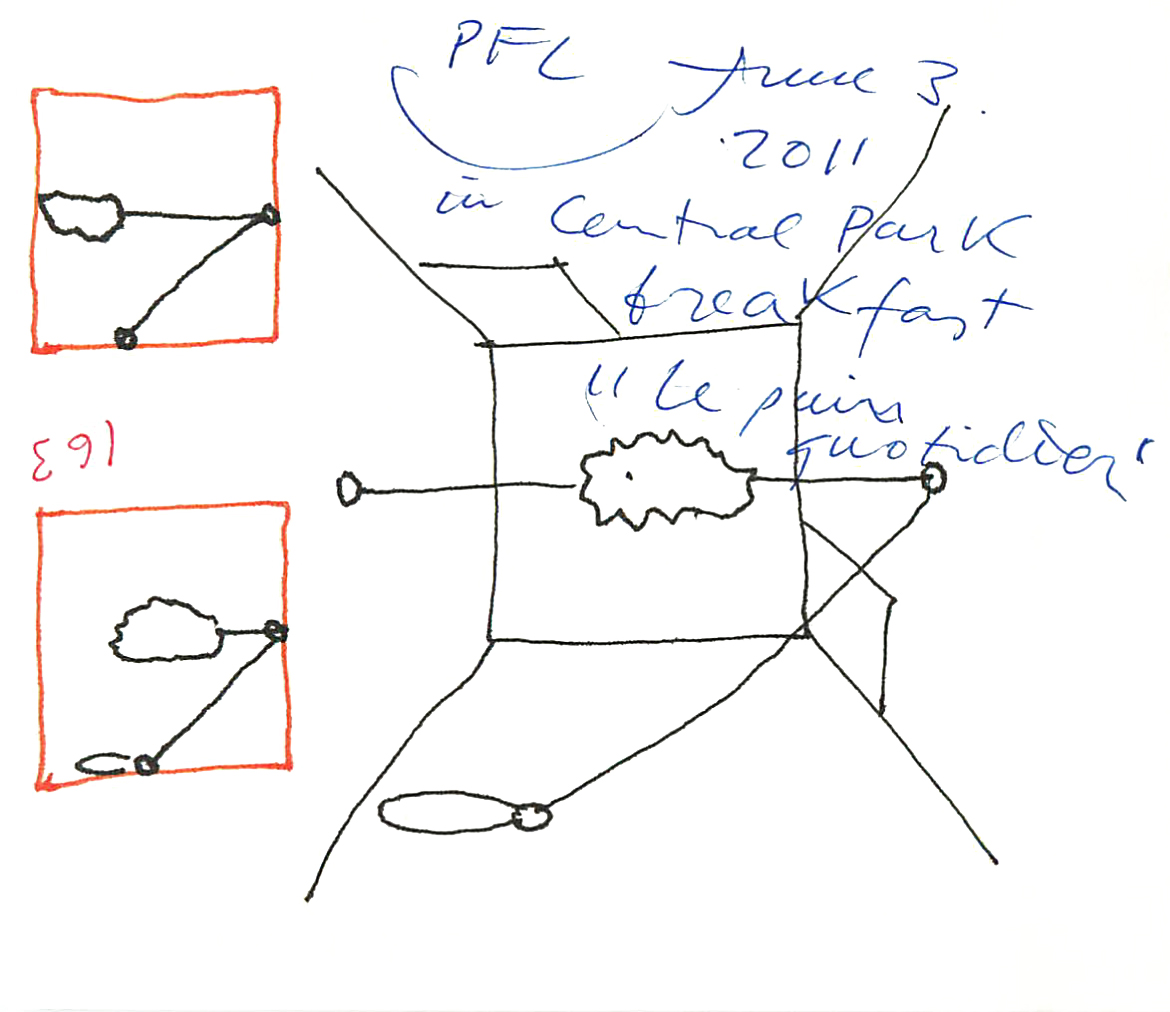 PFL June 3.
2011
in Central Park
breakfast
"Le pain
quotidien"
163